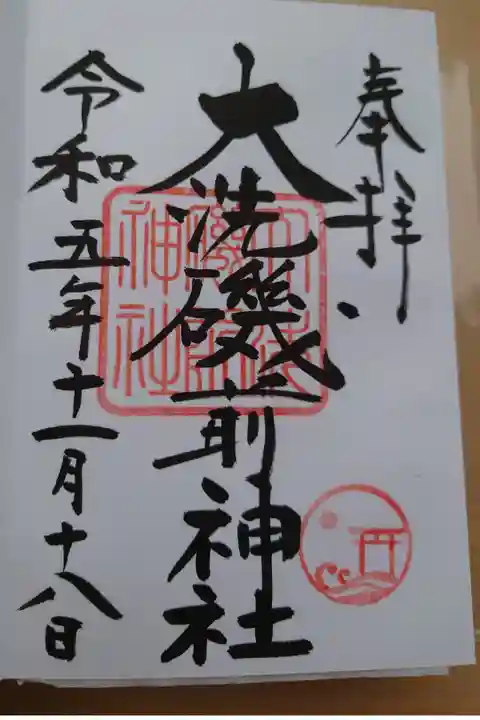 奉拝
大洗磯前神社
大洗磯前神社
令和五年十一月十八日